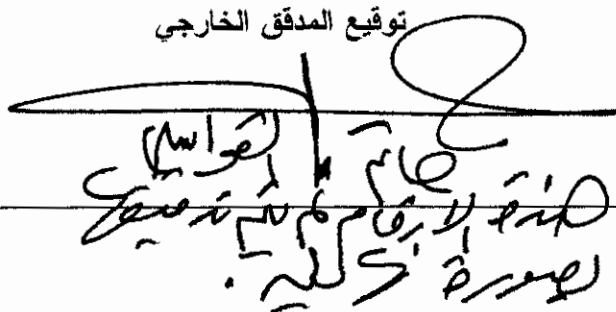 توقيع المدقق الخارجي
حاتم القواسمي
هذه الارقام لم يتم تدقيقها
بصورة كلية .